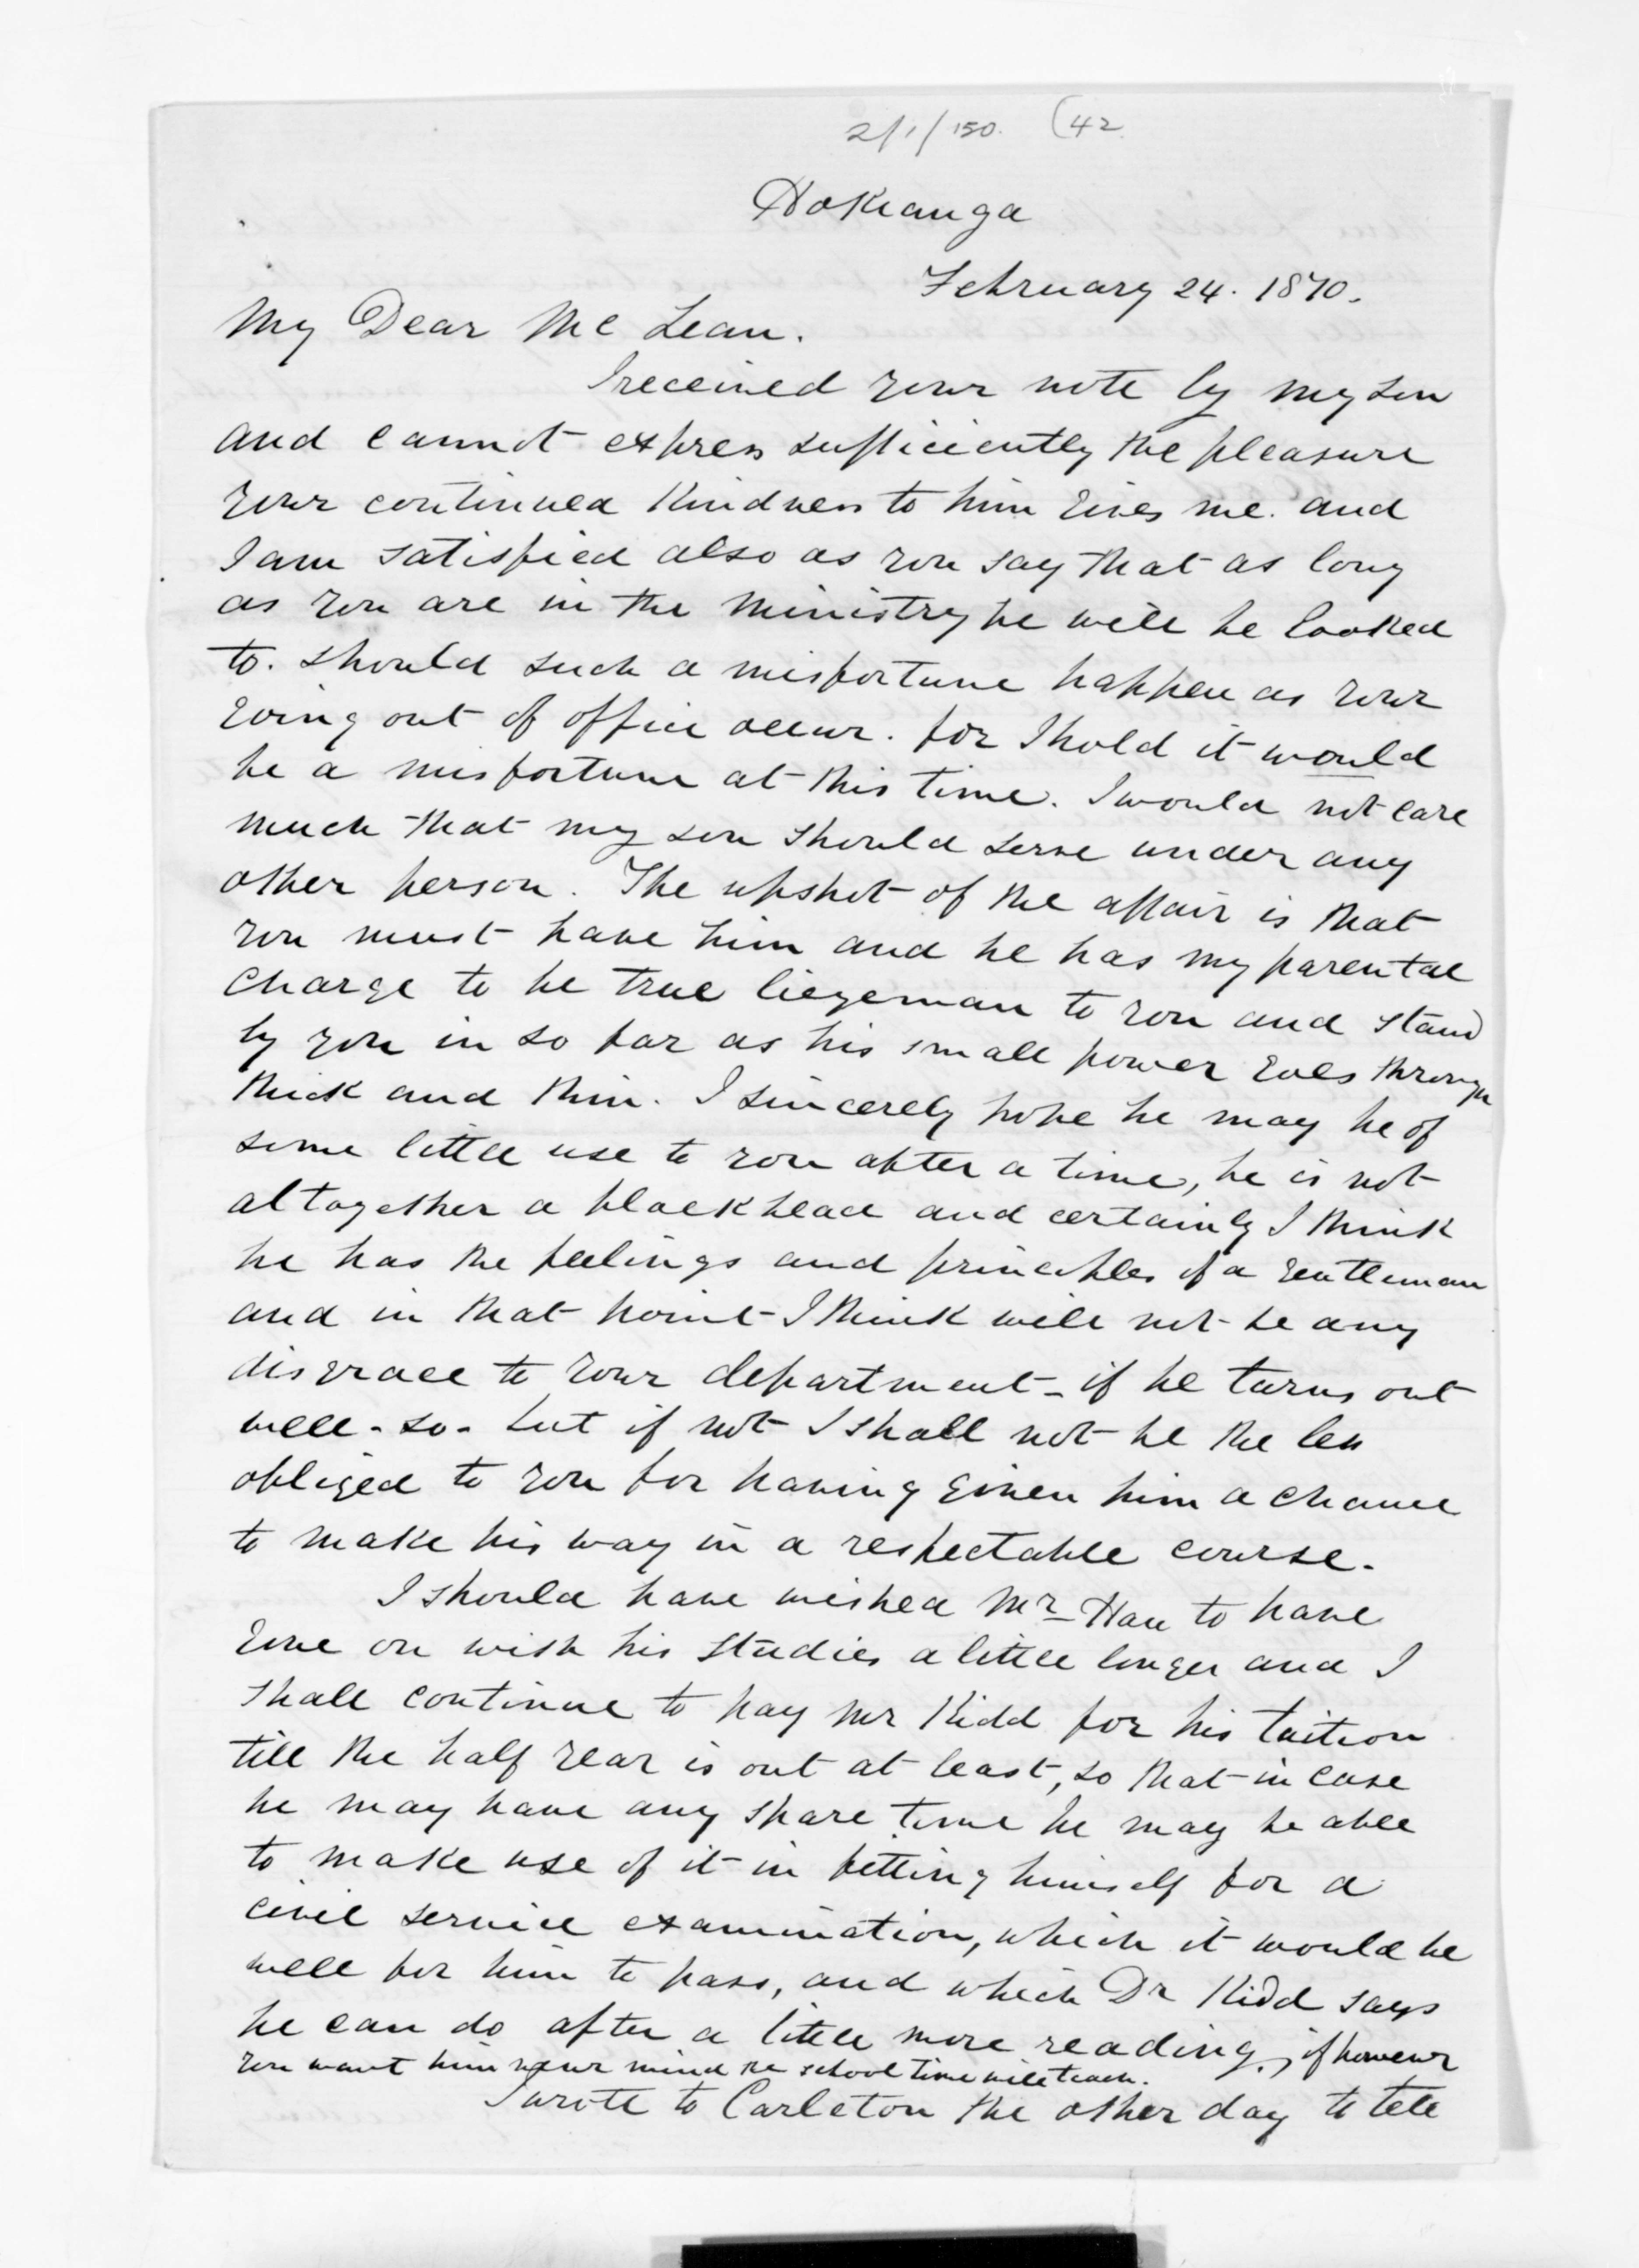 2/1/150. (42
Hokianga
February 24. 1870.
My Dear McLean.
I received your note by my son
and cannot express sufficiently the pleasure
your continued kindness to him gives me. and
I am satisfied also as you say that as long
as you are in the Ministry he will be looked
to. should such a misfortune happen as your
going out of office occur. for I hold it would
be a misfortune at this time. I would not care
much that my son should serve under any
other person. The upshot of the affair is that
you must have him and he has my parental
charge to be true liegeman to you and stand
by you in so far as his small power goes through
thick and thin. I sincerely hope he may be of
some little use to you after a time, he is not
altogether a blockhead and certainly I think
he has the feelings and principles of a gentleman
and in that point I think will not be any
disgrace to your department - if he turns out
well - so - but if not I shall not be the less
obliged to you for having given him a chance
to make his way in a respectable course.
I should have wished Mr to have
gone on with his studies a little longer and I
shall continue to pay Mr Kidd for his tuition
till the half year is out at least, so that in case
he may have any spare time he may be able
to make use of it in fitting himself for a
civil service examination, which it would be
well for him to pass, and which Dr Kidd says
he can do after a little more reading, if however
you want him never mind the school time will teach.
I wrote to Carleton the other day to tell